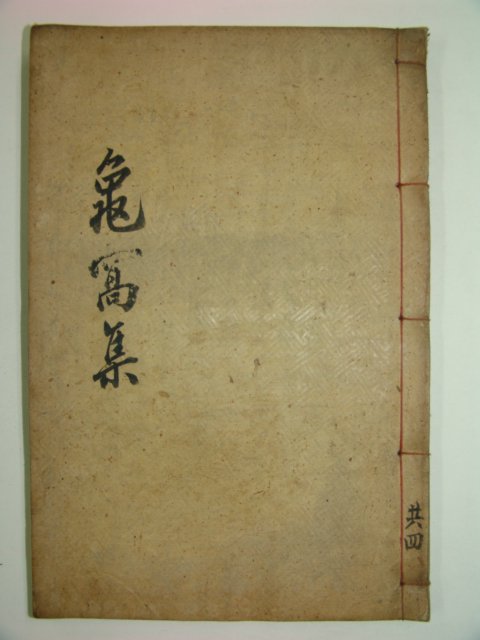 龜窩集
共四